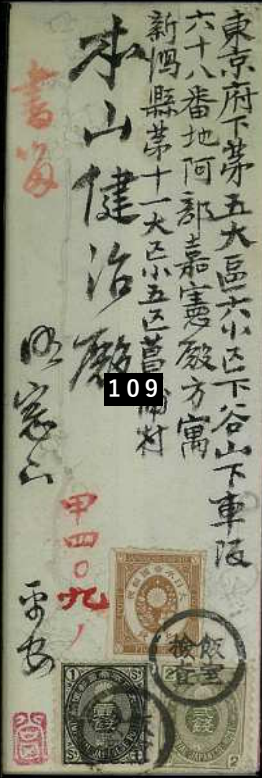 東京府下第五大區六小区下谷山下車坂
六十八番地阿部嘉憲殿方寓
新潟縣第十一大区小五区菖蒲村
本山健治殿
109
書留
甲四〇九
平安
檢査
飯室
1
S
2